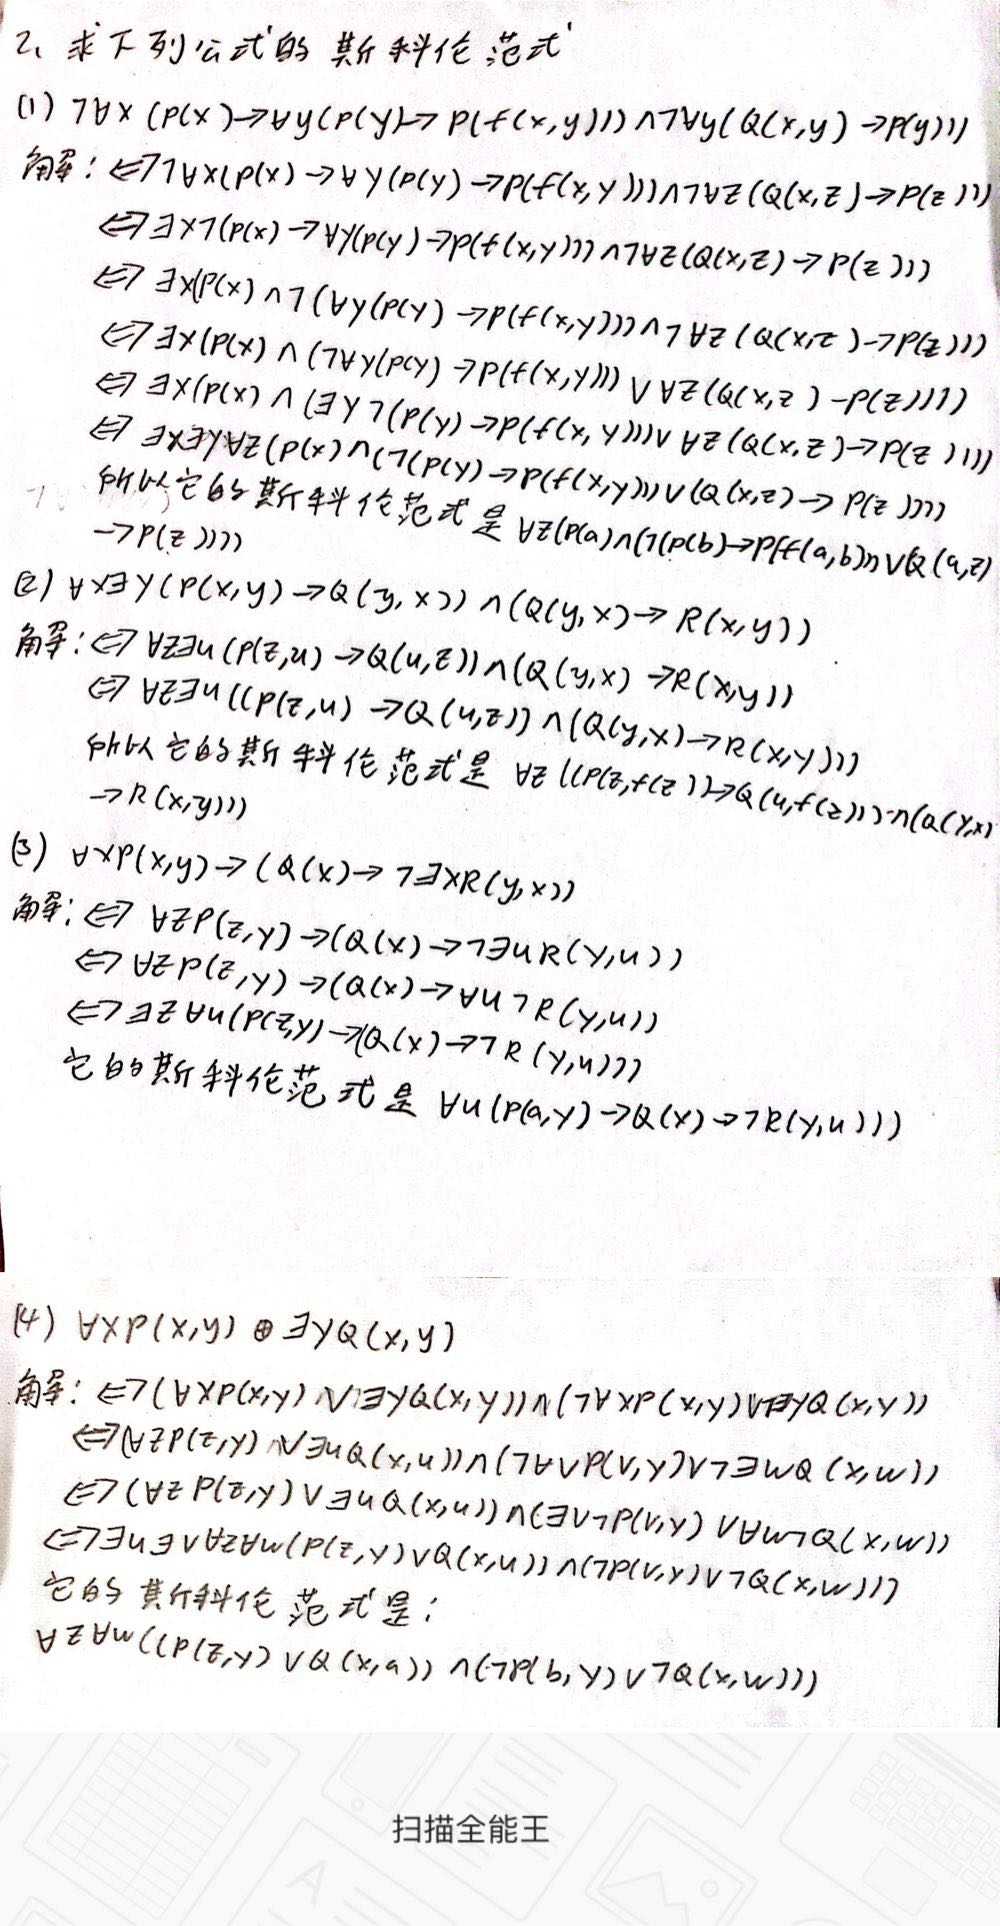 2、求下列公式的斯科伦范式
(1) ¬∀x(P(x)→∀y(P(y)→P(f(x,y)))∧¬∀y(Q(x,y)→P(y)))
解:⇔¬∀x(P(x)→∀y(P(y)→P(f(x,y)))∧¬∀z(Q(x,z)→P(z)))
⇔∃x¬(P(x)→∀y(P(y)→P(f(x,y)))∧¬∀z(Q(x,z)→P(z)))
⇔∃x(P(x)∧¬(∀y(P(y)→P(f(x,y)))∧¬∀z(Q(x,z)→P(z)))
⇔∃x(P(x)∧(¬∀y(P(y)→P(f(x,y)))∨∀z(Q(x,z)→P(z))))
⇔∃x(P(x)∧(∃y¬(P(y)→P(f(x,y)))∨∀z(Q(x,z)→P(z))))
⇔∃x∃y∀z(P(x)∧(¬(P(y)→P(f(x,y)))∨(Q(x,z)→P(z))))
所以它的斯科伦范式是∀z(P(a)∧(¬(P(b)→P(f(a,b)))∨(Q(a,z)
→P(z))))
(2) ∀x∃y(P(x,y)→Q(y,x))∧(Q(y,x)→R(x,y))
解:⇔∀z∃u(P(z,u)→Q(u,z))∧(Q(y,x)→R(x,y))
⇔∀z∃u((P(z,u)→Q(u,z))∧(Q(y,x)→R(x,y)))
所以它的斯科伦范式是∀z((P(z,f(z))→Q(u,f(z)))∧(Q(y,x)
→R(x,y)))
(3) ∀xP(x,y)→(Q(x)→¬∃xR(y,x))
解:⇔∀zP(z,y)→(Q(x)→¬∃uR(y,u))
⇔∀zP(z,y)→(Q(x)→∀u¬R(y,u))
⇔∃z∀u(P(z,y)→(Q(x)→¬R(y,u)))
它的斯科伦范式是∀u(P(a,y)→(Q(x)→¬R(y,u)))
(4) ∀xP(x,y)⊕∃yQ(x,y)
解:⇔(∀xP(x,y)∨∃yQ(x,y))∧(¬∀xP(x,y)∨¬∃yQ(x,y))
⇔(∀zP(z,y)∨∃uQ(x,u))∧(¬∀vP(v,y)∨¬∃wQ(x,w))
⇔(∀zP(z,y)∨∃uQ(x,u))∧(∃v¬P(v,y)∨∀w¬Q(x,w))
⇔∃u∃v∀z∀w(P(z,y)∨Q(x,u))∧(¬P(v,y)∨¬Q(x,w)))
它的斯科伦范式是:
∀z∀w((P(z,y)∨Q(x,a))∧(¬P(b,y)∨¬Q(x,w)))
扫描全能王